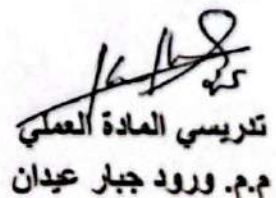 تدريسي المادة العملي
م.م. ورود جبار عيدان